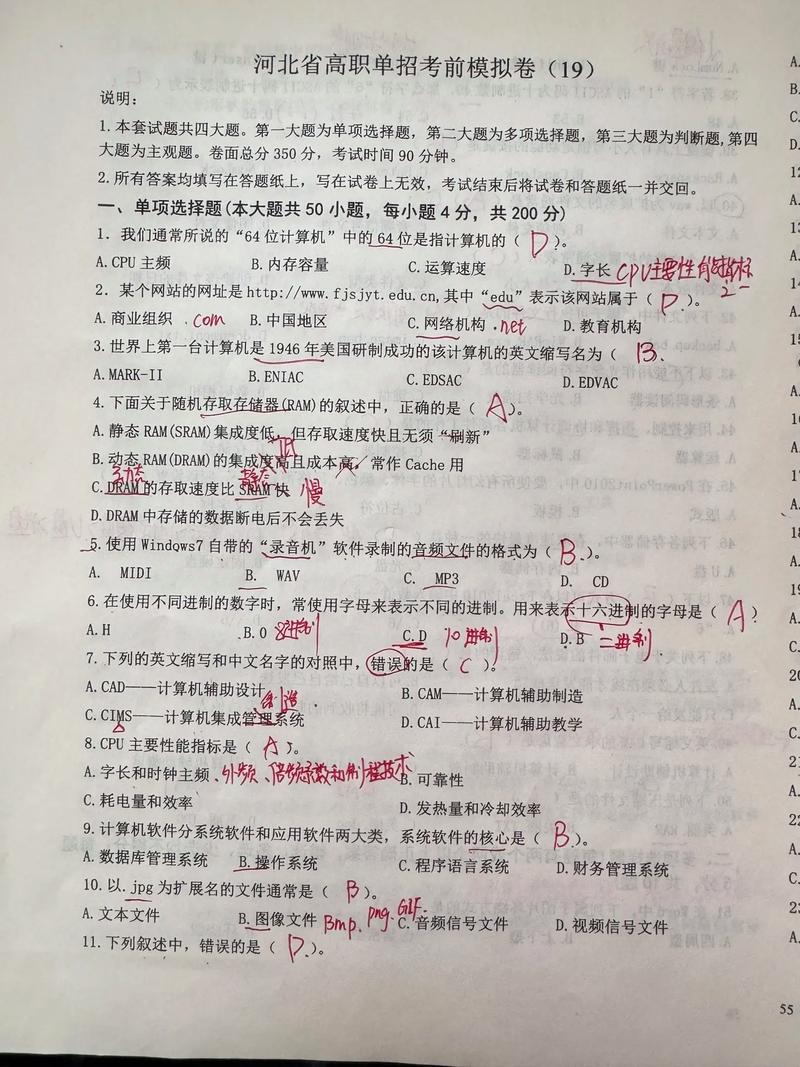 河北省高职单招考前模拟卷（19）
说明：
1.本套试题共四大题。第一大题为单项选择题，第二大题为多项选择题，第三大题为判断题,第四
大题为主观题。卷面总分350分，考试时间90分钟。
2.所有答案均填写在答题纸上，写在试卷上无效，考试结束后将试卷和答题纸一并交回。
一、单项选择题(本大题共50小题，每小题4分，共200分)
1．我们通常所说的“64位计算机”中的64位是指计算机的（ D ）。
A.CPU主频 B.内存容量 C.运算速度 D.字长 CPU主要性能指标
之一
2．某个网站的网址是http://www.fjsjyt.edu.cn,其中“edu”表示该网站属于（ D ）。
A.商业组织 .com B.中国地区 C.网络机构 .net D.教育机构
3.世界上第一台计算机是1946年美国研制成功的该计算机的英文缩写名为（ B ．
A.MARK-II B.ENIAC C.EDSAC D.EDVAC
4.下面关于随机存取存储器(RAM)的叙述中，正确的是（ A ）。
A.静态RAM(SRAM)集成度低，但存取速度快且无须“刷新”
低
B.动态RAM(DRAM)的集成度高且成本高。常作Cache用
动态 静态
C.DRAM的存取速度比SRAM快 慢
D.DRAM中存储的数据断电后不会丢失
5.使用Windqws7自带的“录音机”软件录制的音频文件的格式为（ B ）。
A. MIDI B. WAV C. MP3 D. CD
6.在使用不同进制的数字时，常使用字母来表示不同的进制。用来表示十六进制的字母是（ A ）
A.H B.O 8进制 C.D 10进制 D.B 二进制
7.下列的英文缩写和中文名字的对照中，错误的是（ C ）。
A.CAD——计算机辅助设计 B.CAM——计算机辅助制造
制造
C.CIMS——计算机集成管理系统 D.CAI——计算机辅助教学
8.CPU主要性能指标是（ A ）。
A.字长和时钟主频、外频、倍频系数和制程技术 B.可靠性
C.耗电量和效率 D.发热量和冷却效率
9.计算机软件分系统软件和应用软件两大类，系统软件的核心是（ B ）。
A.数据库管理系统 B.操作系统 C.程序语言系统 D.财务管理系统
10.以.jpg为扩展名的文件通常是（ B ）。
A.文本文件 B.图像文件 Bmp. png. GIF. C.音频信号文件 D.视频信号文件
11.下列叙述中，错误的是（ D ）。
55